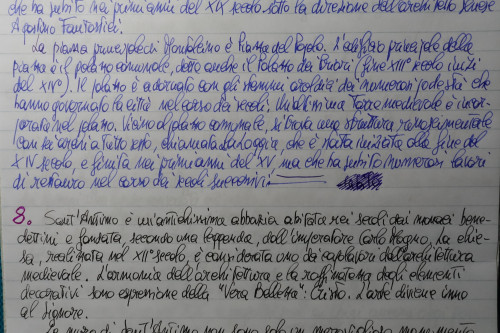 che ha subito nei primi anni del XIX secolo sotto la direzione dell'architetto senese
Agostino Fantastici.
La piazza principale di Montalcino è Piazza del Popolo. L'edificio principale della
piazza è il palazzo comunale, detto anche il Palazzo dei Priori (fine XIII° secolo inizi
del XIV°). Il palazzo è adornato con gli stemmi araldici dei numerosi podestà che
hanno governato la città nel corso dei secoli. Un'altissima Torre medievale è incor-
porata nel palazzo. Vicino al palazzo comunale, si trova una struttura rinascimentale
con sei archi a tutto sesto, chiamata La Loggia, che è stata iniziata alla fine del
XIV secolo e finita nei primi anni del XV, ma che ha subito numerosi lavori
di restauro nel corso dei secoli successivi.
8. Sant'Antimo è un'antichissima abbazia abitata nei secoli dai monaci bene-
dettini e fondata, secondo una leggenda, dall'imperatore Carlo Magno. La chie-
sa, realizzata nel XII° secolo, è considerata uno dei capolavori dell'architettura
medievale. L'armonia dell'architettura e la raffinatezza degli elementi
decorativi sono espressione della "Vera Bellezza": Cristo. L'arte diviene inno
al Signore.
Le mura di Sant'Antimo non sono solo un meraviglioso monumento